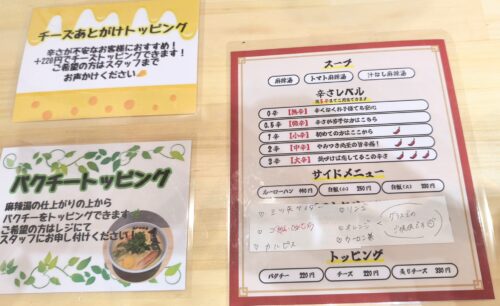 チーズあとがけトッピング
辛さが不安なお客様におすすめ！
+220円でチーズトッピングできます！
ご希望の方はスタッフまで
お声かけください
パクチートッピング
麻辣湯の仕上がりの上から
パクチーをトッピングできます
ご希望の方はレジにて
スタッフにお申し付けください！
スープ
麻辣湯 トマト麻辣湯 汁なし麻辣湯
辛さレベル
0辛 【無辛】 辛くなくお子様でも安心
0.5辛 【微辛】 辛さが苦手な方はこちら
1辛 【小辛】 初めての方はここから
2辛 【中辛】 やみつき注意の旨辛級！
3辛 【大辛】
サイドメニュー
ルーローハン 440円 白飯(小) 250円 白飯(並) 330円
カルピス
トッピング
パクチー 220円 チーズ 220円 炙りチーズ 330円